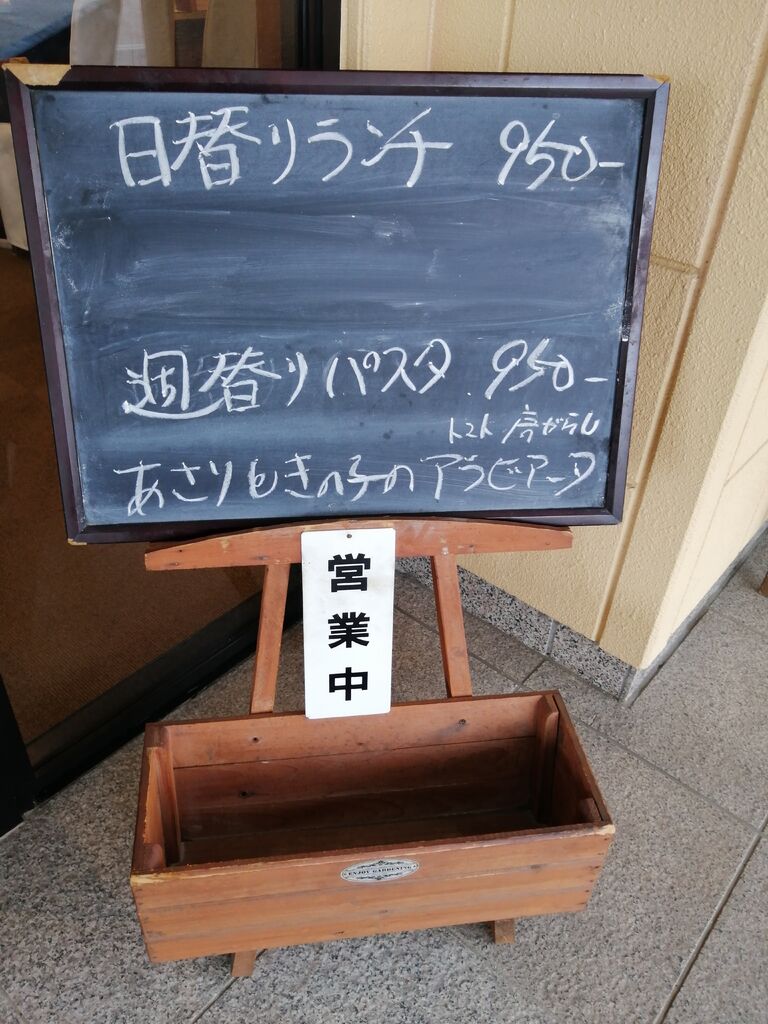 日替りランチ 950-
週替りパスタ 950-
トマト 唐がらし
あさりときの子のアラビアータ
営業中
ENJOY GARDENING